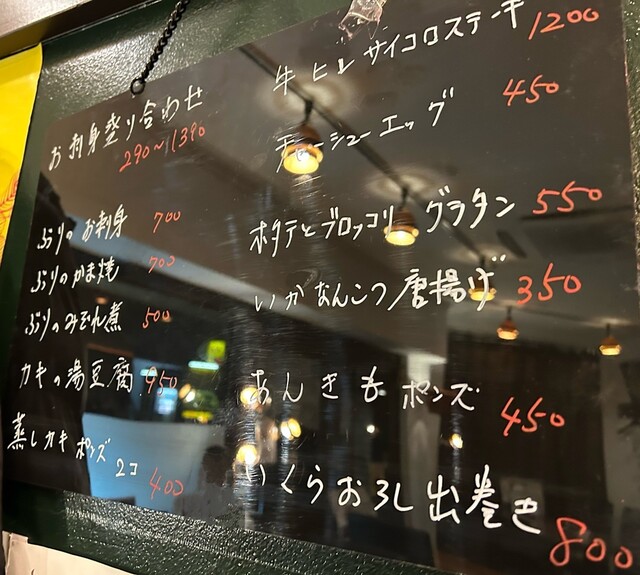 お刺身盛り合わせ
290〜1390
ぶりのお刺身 700
ぶりのかま焼 700
ぶりのみぞれ煮 500
カキの湯豆腐 950
蒸しカキ ポンズ 2コ 400
牛ヒレサイコロステーキ 1200
チャーシューエッグ 450
ホタテとブロッコリグラタン 550
いかなんこつ唐揚げ 350
あんきもポンズ 450
いくらおろし出巻き 800